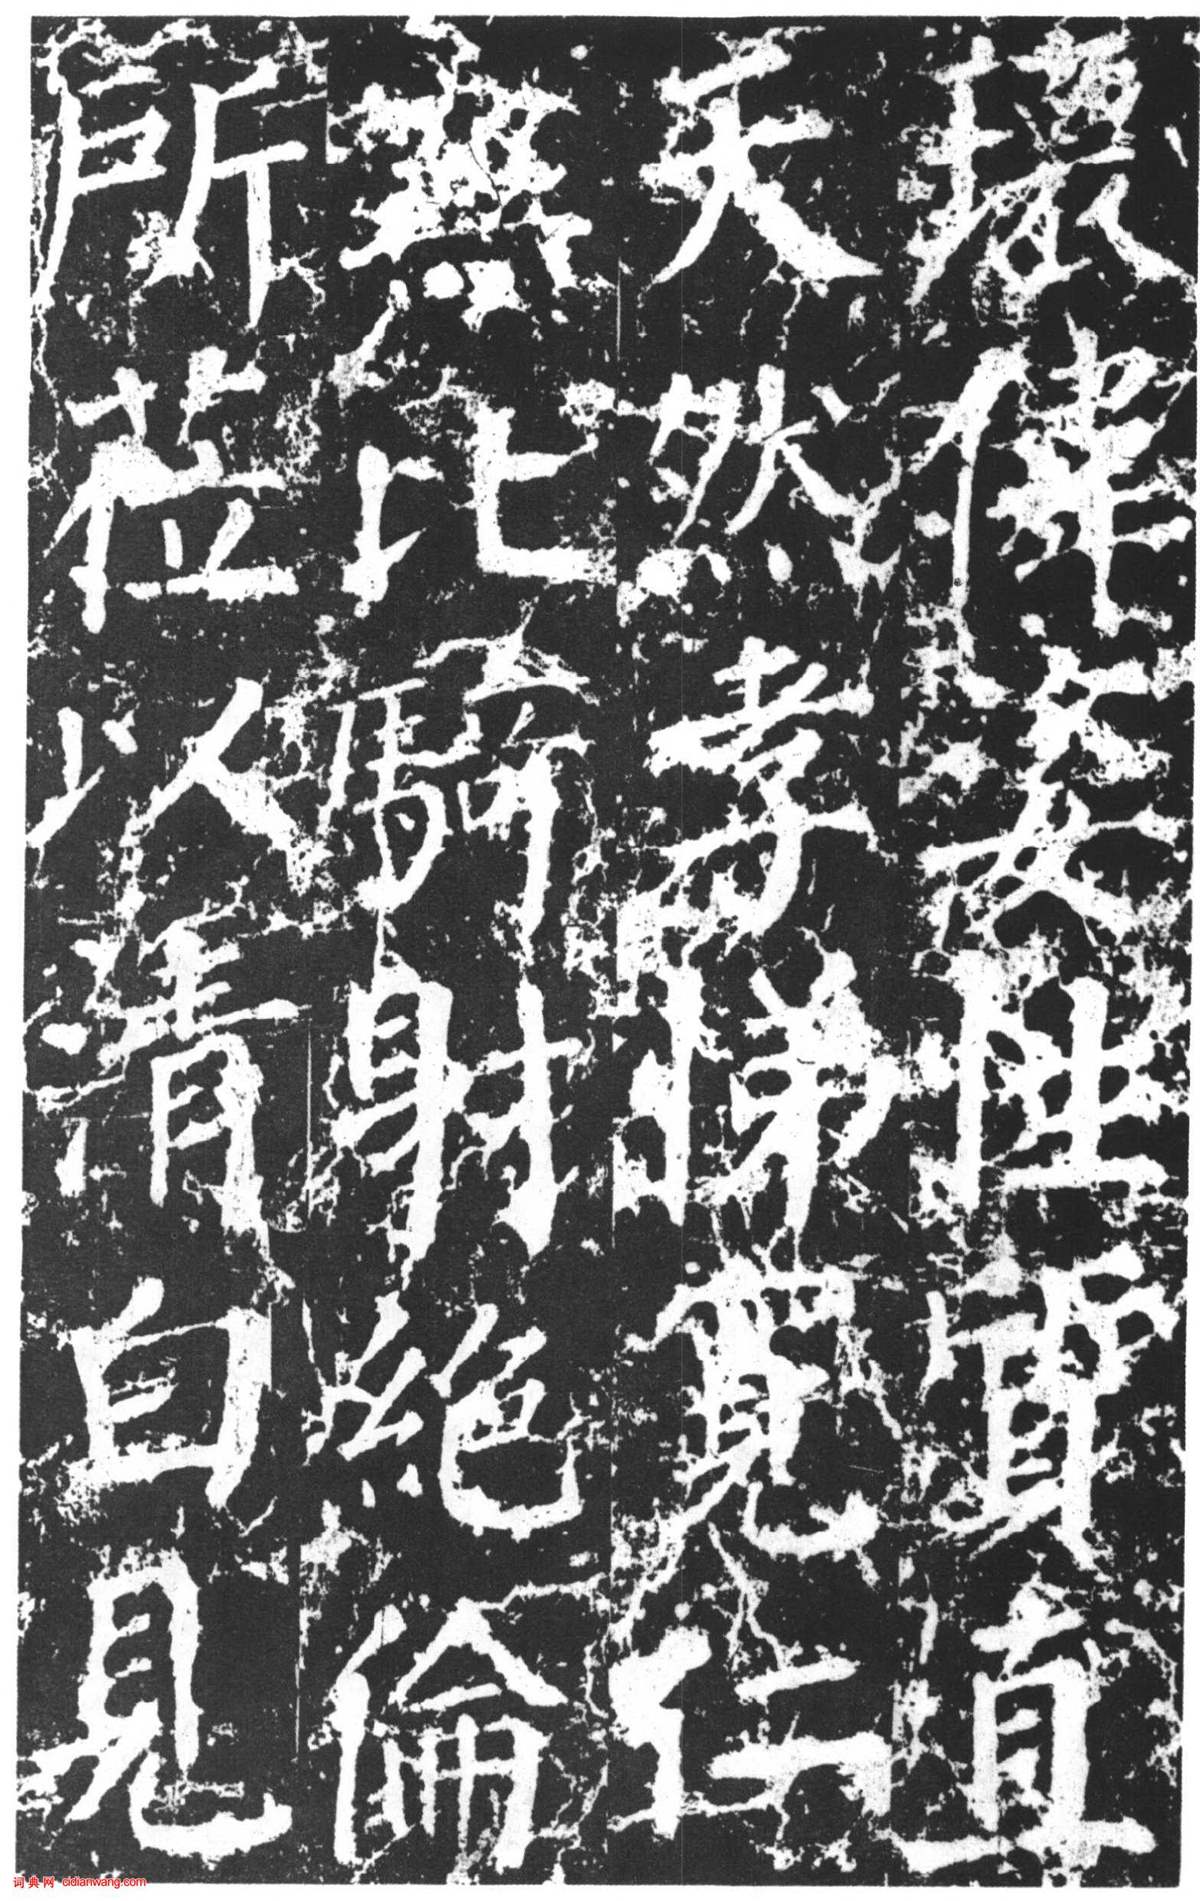 瓌偉姿性質直
天然孝悌寬仁
無比騎射絕倫
所莅以清白見
词典网 cidianwang.com